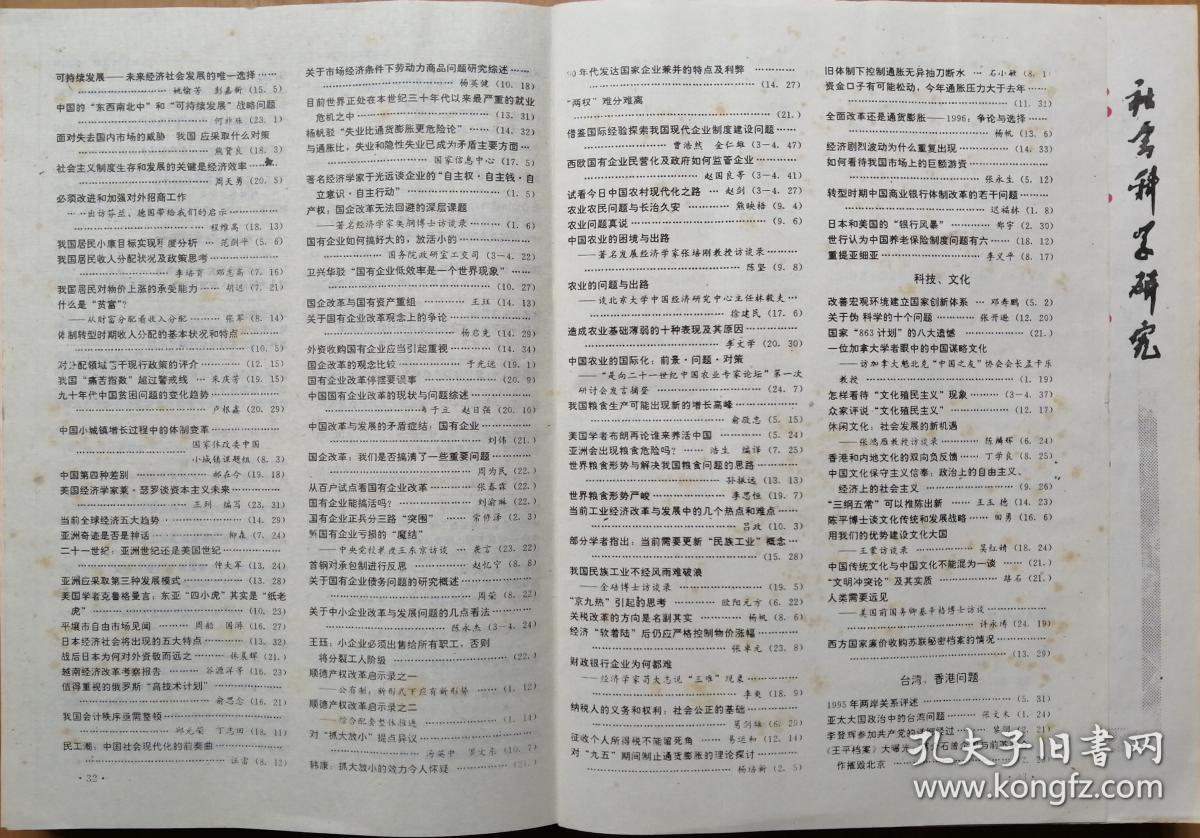 可持续发展——未来经济社会发展的唯一选择……
姚愉芳 彭嘉新 (15. 5)
中国的“东西南北中”和“可持续发展”战略问题
何祚庥 (23. 1)
面对失去国内市场的威胁 我国应采取什么对策
熊贤良 (18. 3)
社会主义制度生存和发展的关键是经济效率……
周天勇 (20. 5)
必须改进和加强对外招商工作
——出访芬兰、德国带给我们的启示
程维高 (18. 13)
我国居民小康目标实现程度分析 … 范剑平 (5. 6)
我国居民收入分配状况及政策思考……
李培育 邓志高 (7. 16)
我国居民对物价上涨的承受能力 …… 胡迟 (7. 21)
什么是“贫富”?
——从财富分配看收入分配 …… 张军 (8. 14)
体制转型时期收入分配的基本状况和特点……
(10. 5)
对分配领域若干现行政策的评介 …… (12. 15)
我国“痛苦指数”超过警戒线 … 朱庆芳 (19. 15)
九十年代中国贫困问题的变化趋势……
卢根鑫 (20. 29)
中国小城镇增长过程中的体制变革……
国家体改委中国
小城镇课题组 (8. 3)
中国第四种差别 …… 郝在今 (19. 18)
美国经济学家莱·瑟罗谈资本主义未来……
王列 编写 (23. 31)
当前全球经济五大趋势 …… (14. 29)
亚洲奇迹是否是神话 …… 柳森 (7. 24)
二十一世纪:亚洲世纪还是美国世纪……
仲大军 (13. 24)
亚洲应采取第三种发展模式 …… (13. 28)
美国学者克鲁格曼言:东亚“四小虎”其实是“纸老
虎” …… (10. 23)
平壤市自由市场见闻 …… 周韬 国海 (16. 27)
日本经济社会将出现的五大特点 …… (13. 32)
战后日本为何对外资敬而远之 …… 林晨辉 (21.)
越南经济改革考察报告 …… 谷源洋等 (16. 23)
值得重视的俄罗斯“高技术计划”……
俞思念 (16. 21)
我国会计秩序亟需整顿……
邱元荣 丁志田 (18. 11)
民工潮:中国社会现代化的前奏曲……
汪雷 (8. 12)
·32·
关于市场经济条件下劳动力商品问题研究综述……
杨英健 (10. 18)
目前世界正处在本世纪三十年代以来最严重的就业
危机之中 …… (13. 31)
杨帆驳“失业比通货膨胀更危险论” …… (14. 32)
与通胀比,失业和隐性失业已成为矛盾主要方面…
国家信息中心 (17. 5)
著名经济学家于光远谈企业的“自主权·自主钱·自
立意识·自主行动” …… (1. 5)
产权:国企改革无法回避的深层课题
——著名经济学家吴稼博士访谈录 …… (1. 6)
国有企业如何搞好大的,放活小的……
国务院政研室工交司 (3—4. 22)
卫兴华驳“国有企业低效率是一个世界现象”……
(10. 27)
国企改革与国有资产重组 …… 王珏 (14. 13)
关于国有企业改革观念上的争论……
杨启先 (14. 29)
外资收购国有企业应当引起重视 …… (14. 34)
国企改革的观念比较 …… 于光远 (19. 1)
国有企业改革停摆要误事 …… (20. 9)
中国国有企业改革的现状与问题综述……
肖于立 赵日强 (20. 10)
中国改革与发展的矛盾症结:国有企业……
刘伟 (21.)
国企改革:我们是否搞清了一些重要问题……
周为民 (22.)
从百户试点看国有企业改革 …… 张春霖 (22.)
国有企业能搞活吗? …… 刘渝琳 (22.)
国有企业正兵分三路“突围” …… 常修泽 (2. 3)
解国有企业亏损的“魔结”
——中央党校教授王东京访谈 …… 龚言 (23. 22)
首钢对承包制进行反思 …… 赵忆宁 (8. 8)
关于国有企业债务问题的研究概述……
周荣 (8. 22)
关于中小企业改革与发展问题的几点看法……
陈永杰 (3—4. 24)
王珏:小企业必须出售给所有职工,否则
将分裂工人阶级 …… (22.)
顺德产权改革启示录之一
——公有制:新形式下应有新形势 …… (1. 12)
顺德产权改革启示录之二
——综合配套整体推进 …… (1. 14)
对“抓大放小”提点异议……
汤英中 罗文东 (10. 7)
韩康:抓大放小的效力令人怀疑 …… (21.)
90年代发达国家企业兼并的特点及利弊 ……
(14. 27)
“两权”难分难离
(21.)
借鉴国际经验探索我国现代企业制度建设问题……
曹浩然 金仁雄 (3—4. 47)
西欧国有企业民营化及政府如何监管企业……
赵国良等 (3—4. 41)
试看今日中国农村现代化之路 …… 赵剑 (3—4. 27)
农业农民问题与长治久安 …… 熊映梧 (9. 4)
农业问题真说 …… (9. 6)
中国农业的困境与出路
——著名发展经济学家张培刚教授访谈录……
陈坚 (9. 8)
农业的问题与出路
——谈北京大学中国经济研究中心主任林毅夫…
徐建民 (17. 6)
造成农业基础薄弱的十种表现及其原因……
李文学 (20. 30)
中国农业的国际化:前景·问题·对策
——“是向二十一世纪中国农业专家论坛”第一次
研讨会发言摘登 …… (24. 7)
我国粮食生产可能出现新的增长高峰……
俞敬忠 (5. 15)
美国学者布朗再论谁来养活中国 …… (5. 24)
亚洲会出现粮食危险吗? …… 浩生 编译 (7. 25)
世界粮食形势与解决我国粮食问题的思路……
孙振远 (13. 13)
世界粮食形势严峻 …… 李思恒 (19. 7)
当前工业经济改革与发展中的几个热点和难点……
吕政 (10. 3)
部分学者指出:当前需要更新“民族工业”概念…
(15. 28)
我国民族工业不经风雨难破浪
——金碚博士访谈录 …… (19. 5)
“京九热”引起的思考 …… 欧阳元方 (6. 22)
关税改革的方向是名副其实 …… 杨帆 (8. 6)
经济“软着陆”后仍应严格控制物价涨幅……
张卓元 (23. 8)
财政银行企业为何都难
——经济学家苟大志说“三难”现象……
李爽 (18. 9)
纳税人的义务和权利:社会公正的基础……
葛剑雄 (6. 29)
征收个人所得税不能留死角 …… 易运和 (12. 14)
对“九五”期间制止通货膨胀的理论探讨……
杨培新 (2. 5)
旧体制下控制通胀无异抽刀断水 … 石小敏 (8. 1)
资金口子有可能松动,今年通胀压力大于去年……
(11. 31)
全面改革还是通货膨胀——1996:争论与选择……
杨帆 (13. 6)
经济剧烈波动为什么重复出现 …… (14. 33)
如何看待我国市场上的巨额游资……
张永生 (5. 12)
转型时期中国商业银行体制改革的若干问题……
迟福林 (1. 8)
日本和美国的“银行风暴” …… 郑宇 (2. 30)
世行认为中国养老保险制度问题有六 …… (18. 12)
重提亚细亚 …… 李义平 (8. 17)
科技、文化
改善宏观环境建立国家创新体系 … 邓寿鹏 (5. 2)
关于伪科学的十个问题 …… 张开逊 (12. 20)
国家“863计划”的八大遗憾 …… (21.)
一位加拿大学者眼中的中国谋略文化
——访加拿大魁北克“中国之友”协会会长孟卡乐
教授 …… (1. 19)
怎样看待“文化殖民主义”现象 …… (3—4. 37)
众家评说“文化殖民主义” …… (12. 17)
休闲文化:社会发展的新机遇
——张鸿雁教授访谈录 …… 陈麟辉 (6. 24)
香港和内地文化的双向负反馈 …… 丁学良 (8. 25)
中国文化保守主义信奉:政治上的自由主义、
经济上的社会主义 …… (9. 26)
“三纲五常”可以推陈出新 …… 王玉德 (14. 23)
陈平博士谈文化传统和发展战略 …… 田勇 (16. 6)
用我们的优势建设文化大国
——王蒙访谈录 …… 吴红婧 (18. 24)
中国传统文化与中国文化不能混为一谈 …… (21.)
“文明冲突论”及其实质 …… 路石 (21.)
人类需要远见
——美国前国务卿基辛格博士访谈……
许永涛 (24. 19)
西方国家廉价收购苏联秘密档案的情况……
(13. 29)
台湾、香港问题
1995年两岸关系评述 …… (5. 31)
亚太大国政治中的台湾问题 …… 张文木 (1. 24)
李登辉参加共产党的详细经过 …… (21.)
《王平档案》大曝光
作摧毁北京
社会科学研究
孔夫子旧书网
www.kongfz.com